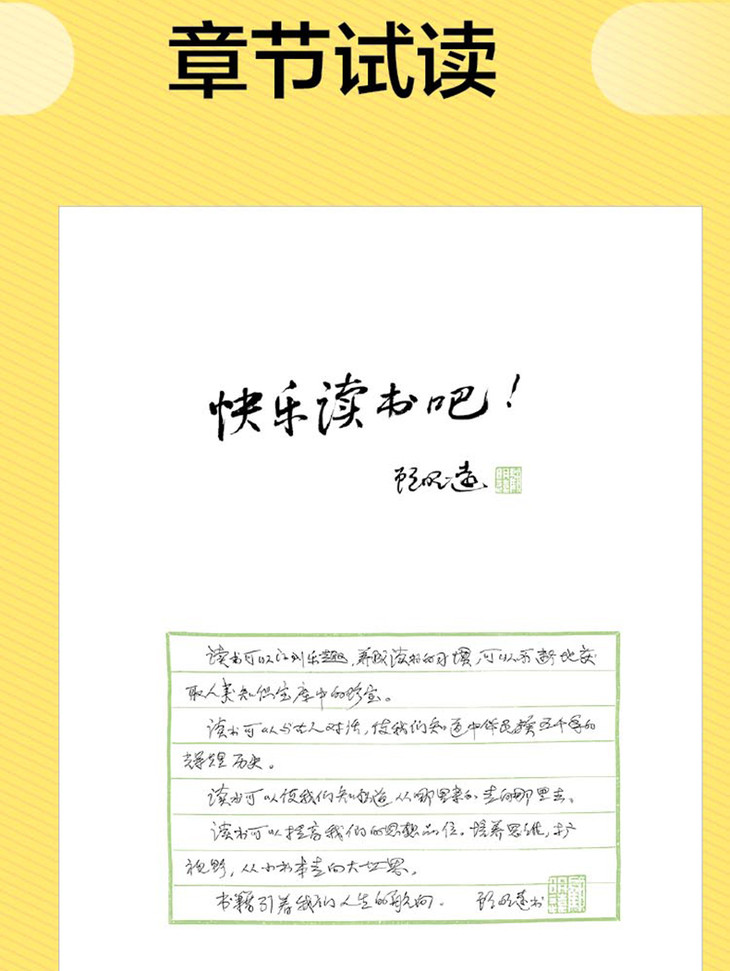 章节试读
快乐读书吧！
顾明远
读书可以得到乐趣，养成读书的习惯，可以不断地获
取人类知识宝库中的珍宝。
读书可以与古人对话，使我们知道中华民族五千年的
辉煌历史。
读书可以使我们知道从哪里来的走向哪里去。
读书可以提高我们的思想品位，培养思维，扩
视野，从小书本走向大世界。
书籍引着我们人生的航向。 顾明远书